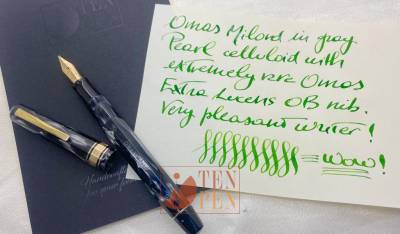 TEN
PEN
Omas Milord in gray
Pearl celluloid with
extremely rare Omas
Extra Lucens OB nib.
Very pleasant writer!
= Wow!
Handcrafted
for your
TEN
PEN